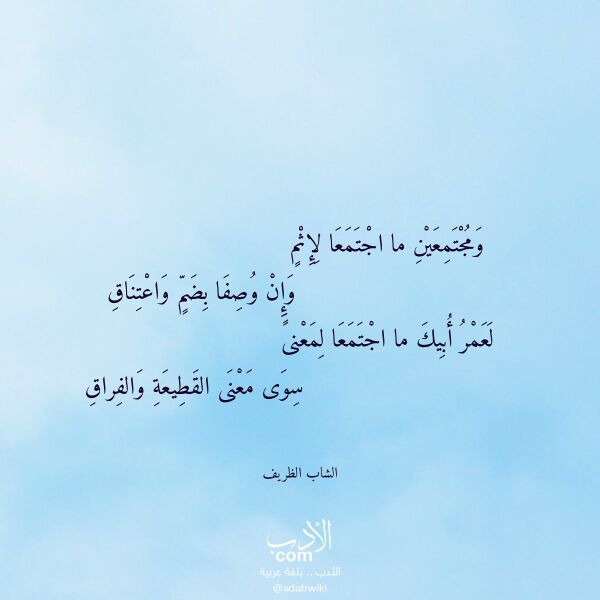 وَمُجْتَمِعَيْنِ ما اجْتَمَعَا لِإِثْمٍ
وَإِنْ وُصِفَا بِضَمٍّ وَاعْتِنَاقِ
لَعَمْرُ أَبِيكَ ما اجْتَمَعَا لِمَعْنىً
سِوَى مَعْنَى القَطِيعَةِ وَالفِراقِ
الشاب الظريف
الأدب
com
الأدب .. بلغة عربية
@adabwiki